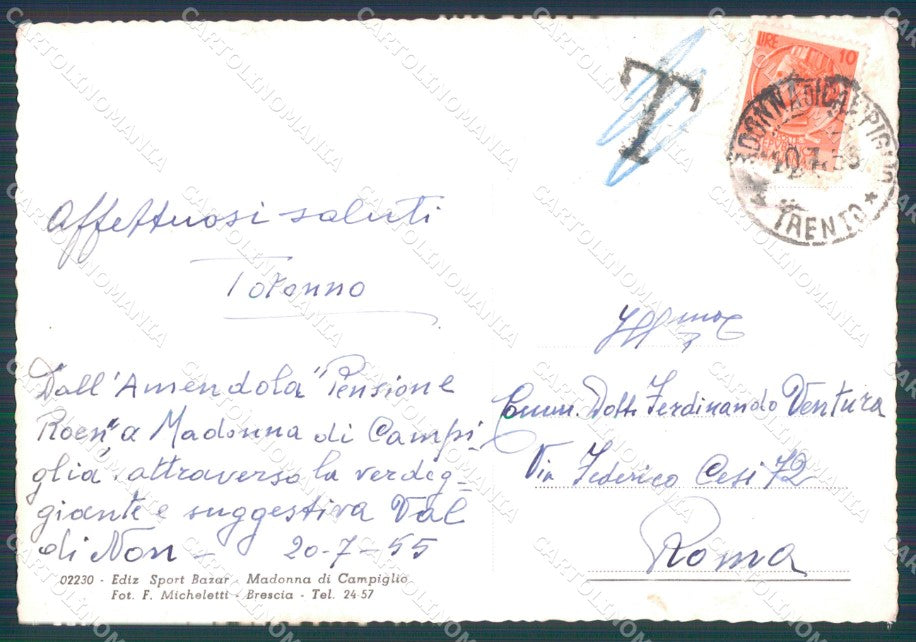 Affettuosi saluti
Totonno
Dall'Amendola "Pensione
Roen" a Madonna di Campi-
glia, attraverso la verdeg-
giante e suggestiva Val
di Non - 20-7-55
02230 - Ediz Sport Bazar - Madonna di Campiglio
Fot. F. Micheletti - Brescia - Tel. 24-57
T
LIRE 10
MADONNA DI CAMPIGLIO
TRENTO
Comm. Dott. Ferdinando Ventura
Via Federico Cesi 72
Roma
CARTOLINOMANIA